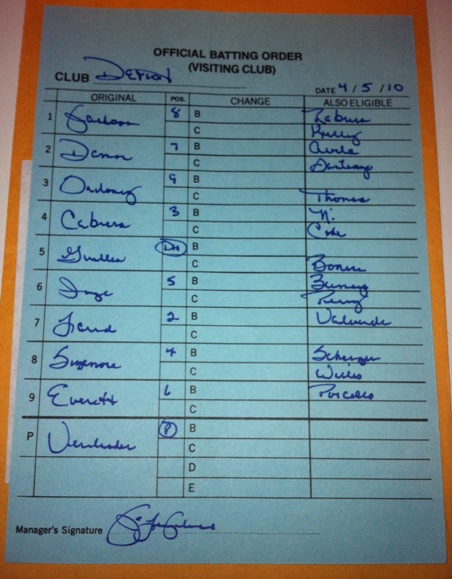 OFFICIAL BATTING ORDER
(VISITING CLUB)
CLUB Detroit
DATE 4/5/10
ORIGINAL POS. CHANGE ALSO ELIGIBLE
1 Jackson 8 B
C Kelly
2 Damon 7 B Avila
C Santiago
3 Ordonez 9 B
C Thomas
4 Cabrera 3 B Ni.
C Coke
5 Guillen DH B
C Bonine
6 Inge 5 B
C Perry
7 Laird 2 B Valverde
C
8 Sizemore 4 B Scherzer
C Willis
9 Everett 6 B Porcello
C
P Verlander P B
C
D
E
Manager's Signature